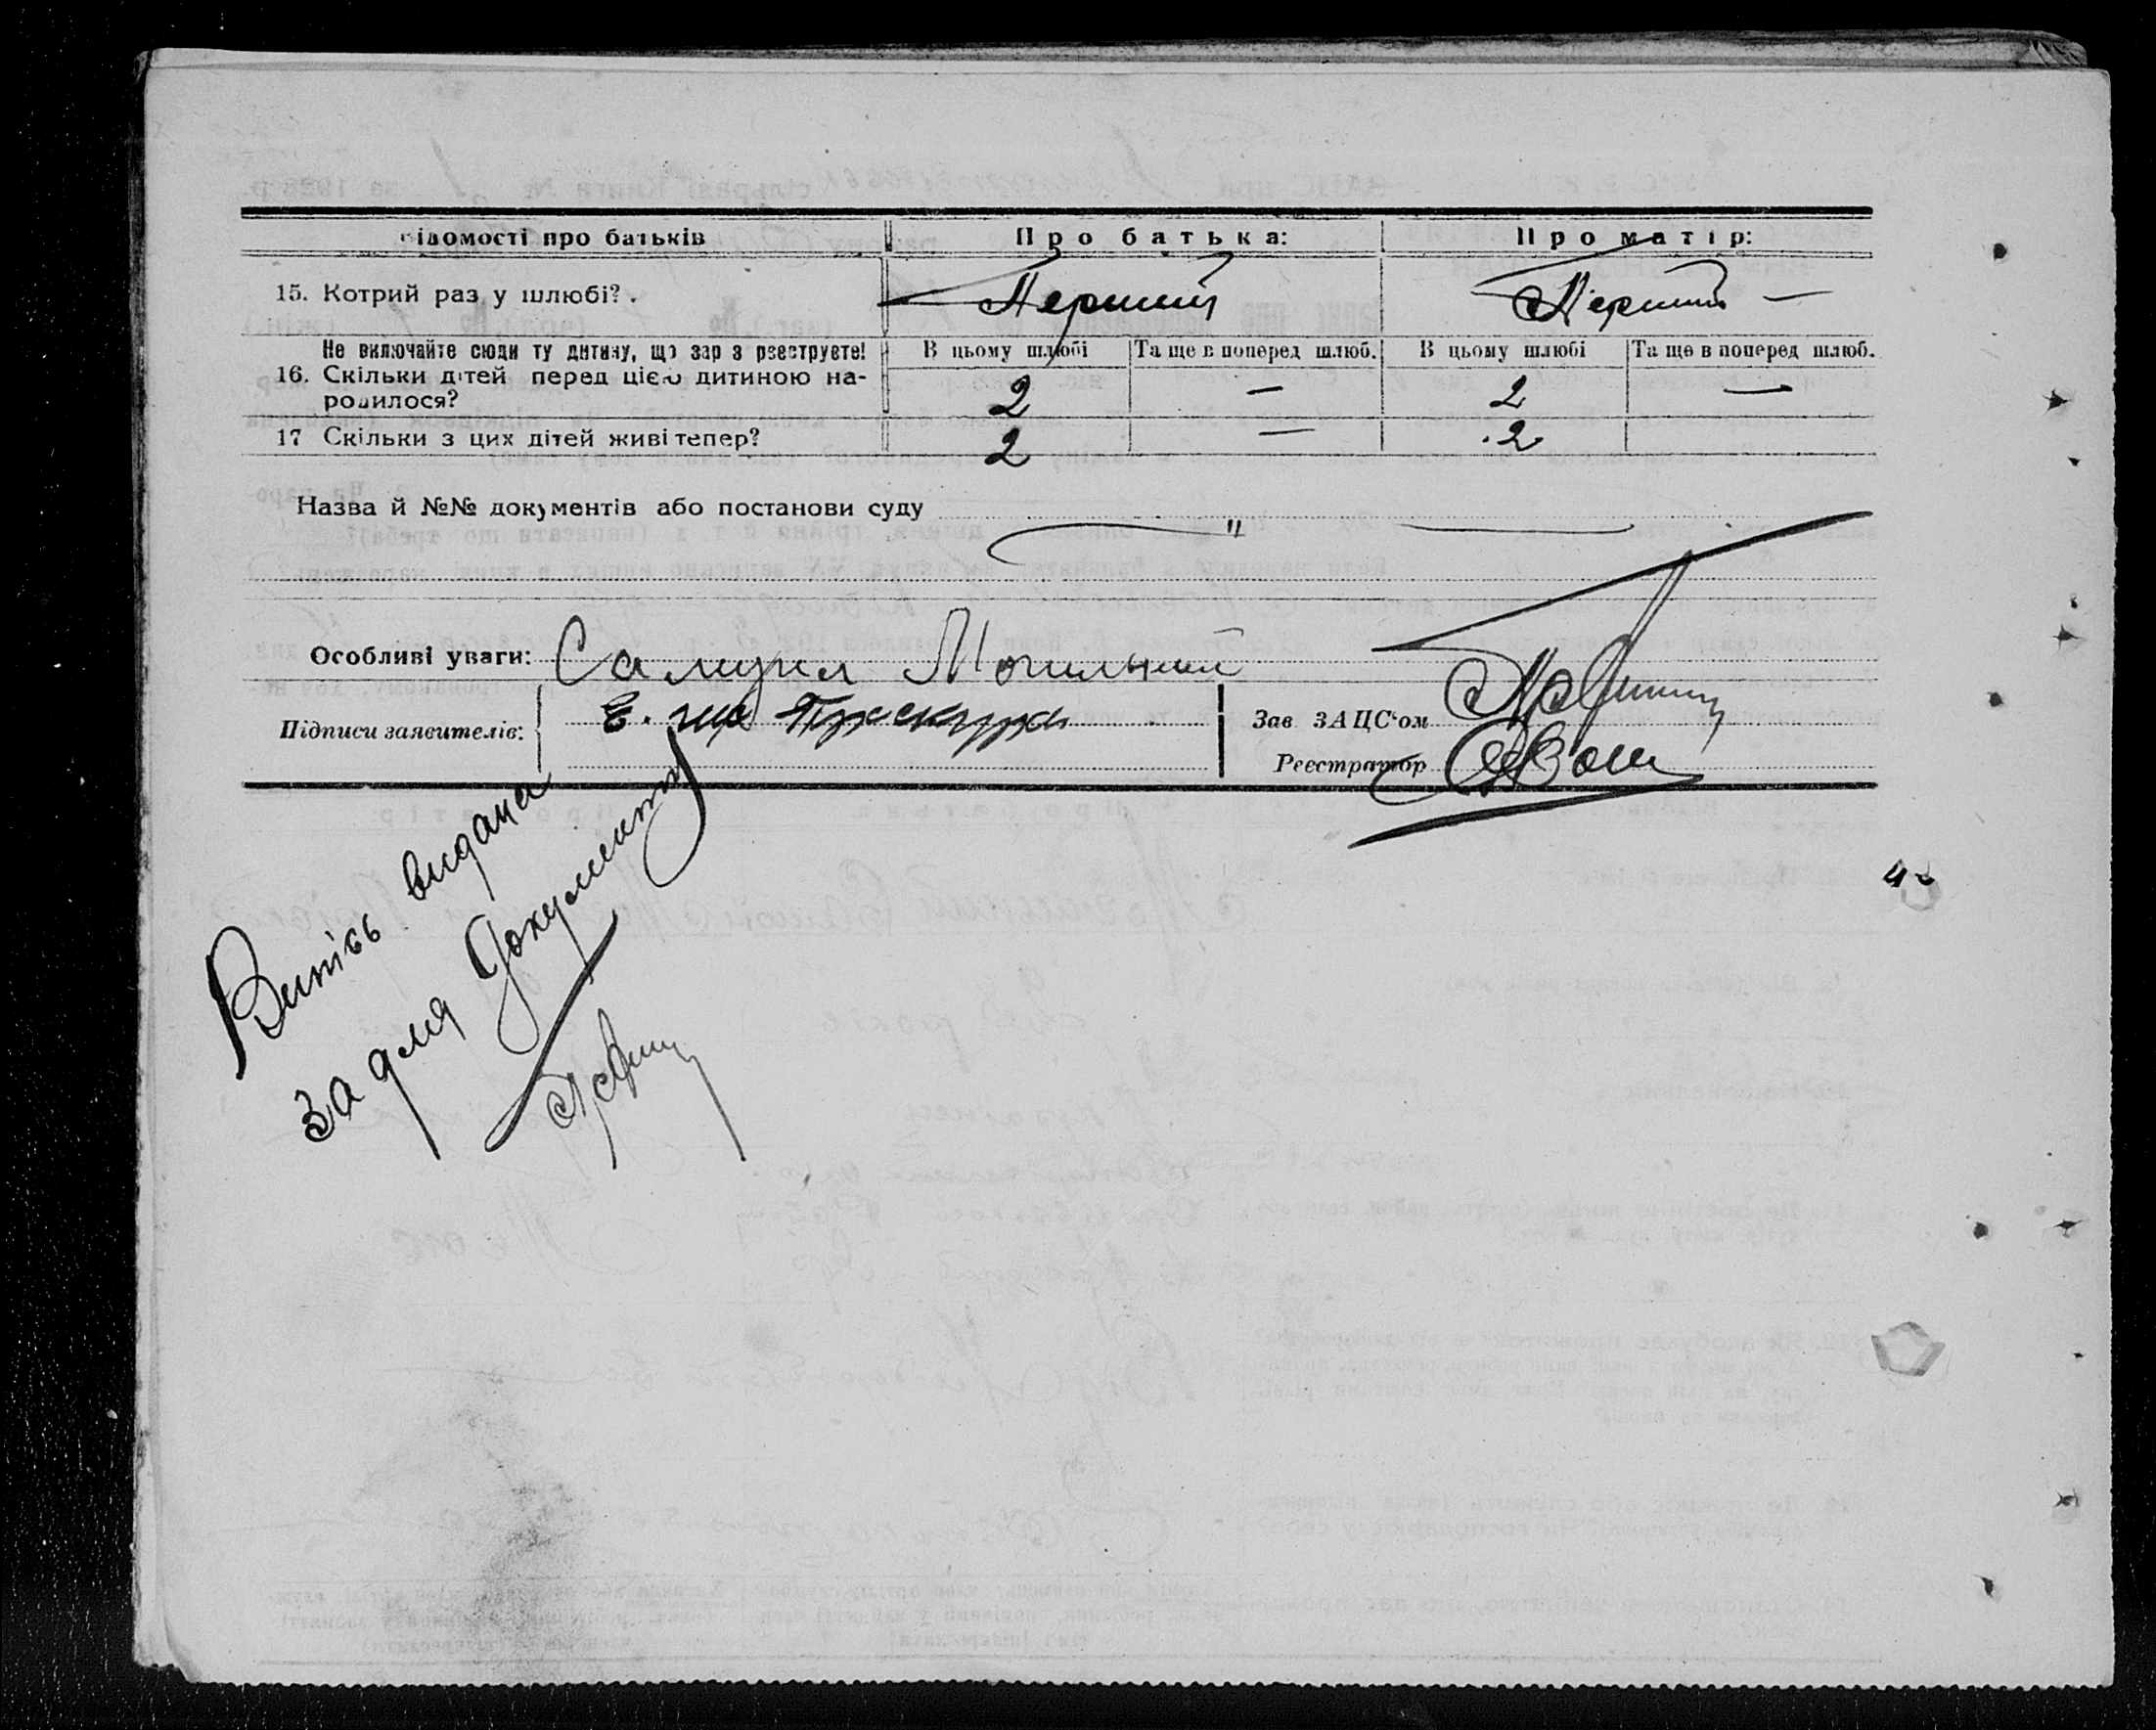 відомості про батьків Про батька: Про матір:
15. Котрий раз у шлюбі? Перший Перший —
Не включайте сюди ту дитину, що зараз реєструєте! В цьому шлюбі Та ще в поперед шлюб. В цьому шлюбі Та ще в поперед шлюб.
16. Скільки дітей перед цією дитиною на-
родилося? 2 — 2 —
17 Скільки з цих дітей живі тепер? 2 — 2
Назва й №№ документів або постанови суду
— " —
Особливі уваги: Самуил Могильний
Підписи заявителів: Зав ЗАЦС‘ом
Реєстратор
Випісь видана
за для документу